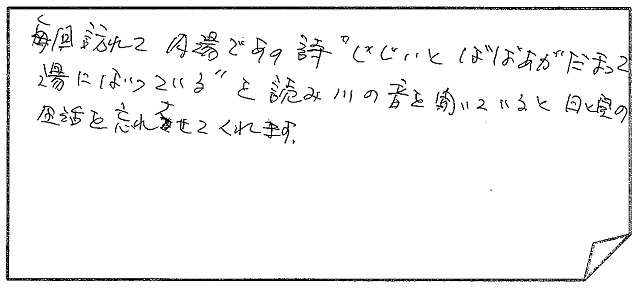 毎回訪れて内湯であの詩"じじいとばばあがだまって
湯にはいっている"を読み川の音を聞いていると日々の
生活を忘れさせてくれます。